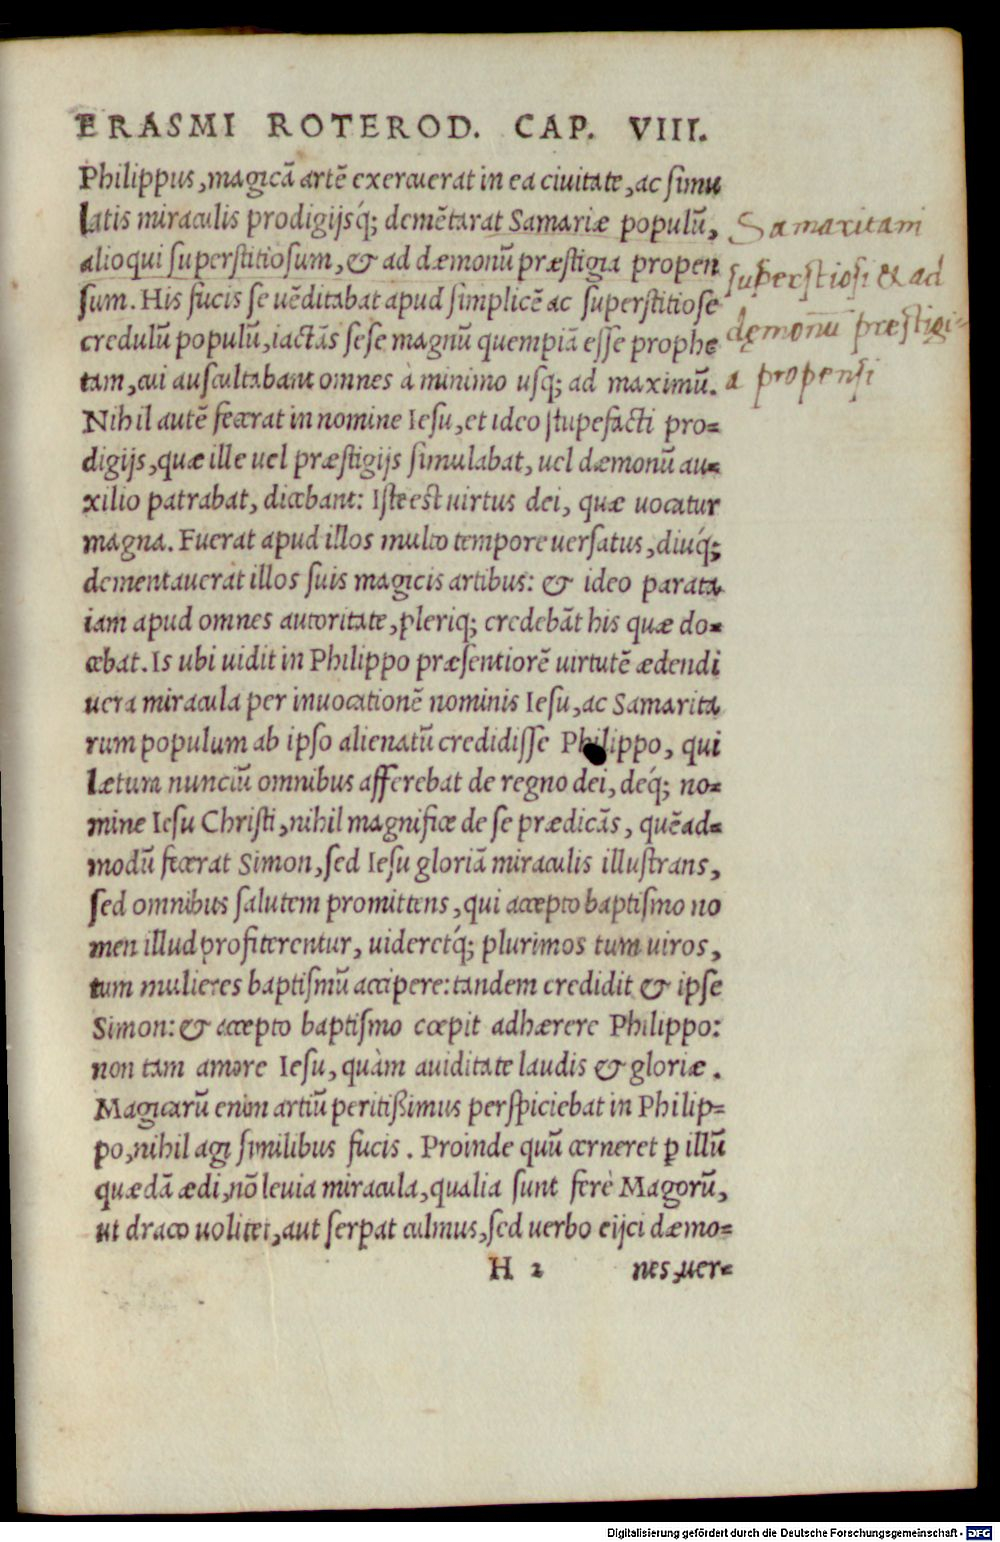 ERASMI ROTEROD. CAP. VIII.
Philippus, magicã artẽ exercuerat in ea ciuitate, ac simu
latis miraculis prodigijsq́; demẽtarat Samariæ populũ,
alioqui superstitiosum, & ad dæmonũ præstigia propen
sum. His fucis se uẽditabat apud simplicẽ ac superstitiose
credulũ populũ, iactãs sese magnũ quempiã esse prophe
tam, cui auscultabant omnes à minimo usq; ad maximũ.
Nihil autẽ fecerat in nomine Iesu, et ideo stupefacti pro=
digijs, quæ ille uel præstigijs simulabat, uel dæmonũ au=
xilio patrabat, dicebant: Iste est uirtus dei, quæ uocatur
magna. Fuerat apud illos multo tempore uersatus, diuq́;
dementauerat illos suis magicis artibus: & ideo parata
iam apud omnes autoritate, pleriq; credebãt his quæ do=
cebat. Is ubi uidit in Philippo præsentiorẽ uirtutẽ ædendi
uera miracula per inuocationẽ nominis Iesu, ac Samarita
rum populum ab ipso alienatũ credidisse Philippo, qui
lætum nunciũ omnibus afferebat de regno dei, deq́; no=
mine Iesu Christi, nihil magnifice de se prædicãs, quẽad=
modũ fecerat Simon, sed Iesu gloriã miraculis illustrans,
sed omnibus salutem promittens, qui accepto baptismo no
men illud profiterentur, uideretq́; plurimos tum uiros,
tum mulieres baptismũ accipere: tandem credidit & ipse
Simon: & accepto baptismo cœpit adhærere Philippo:
non tam amore Iesu, quàm auiditate laudis & gloriæ.
Magicarũ enim artiũ peritißimus perspiciebat in Philip=
po, nihil agi similibus fucis. Proinde quũ cerneret ꝑ illũ
quædã ædi, nõ leuia miracula, qualia sunt ferè Magorũ,
ut draco uolitet, aut serpat culmus, sed uerbo eijci dæmo=
H 2 nes, uer=
Samaritani
superstiosi & ad
dęmonũ præstigi=
a propensi
Digitalisierung gefördert durch die Deutsche Forschungsgemeinschaft - DFG